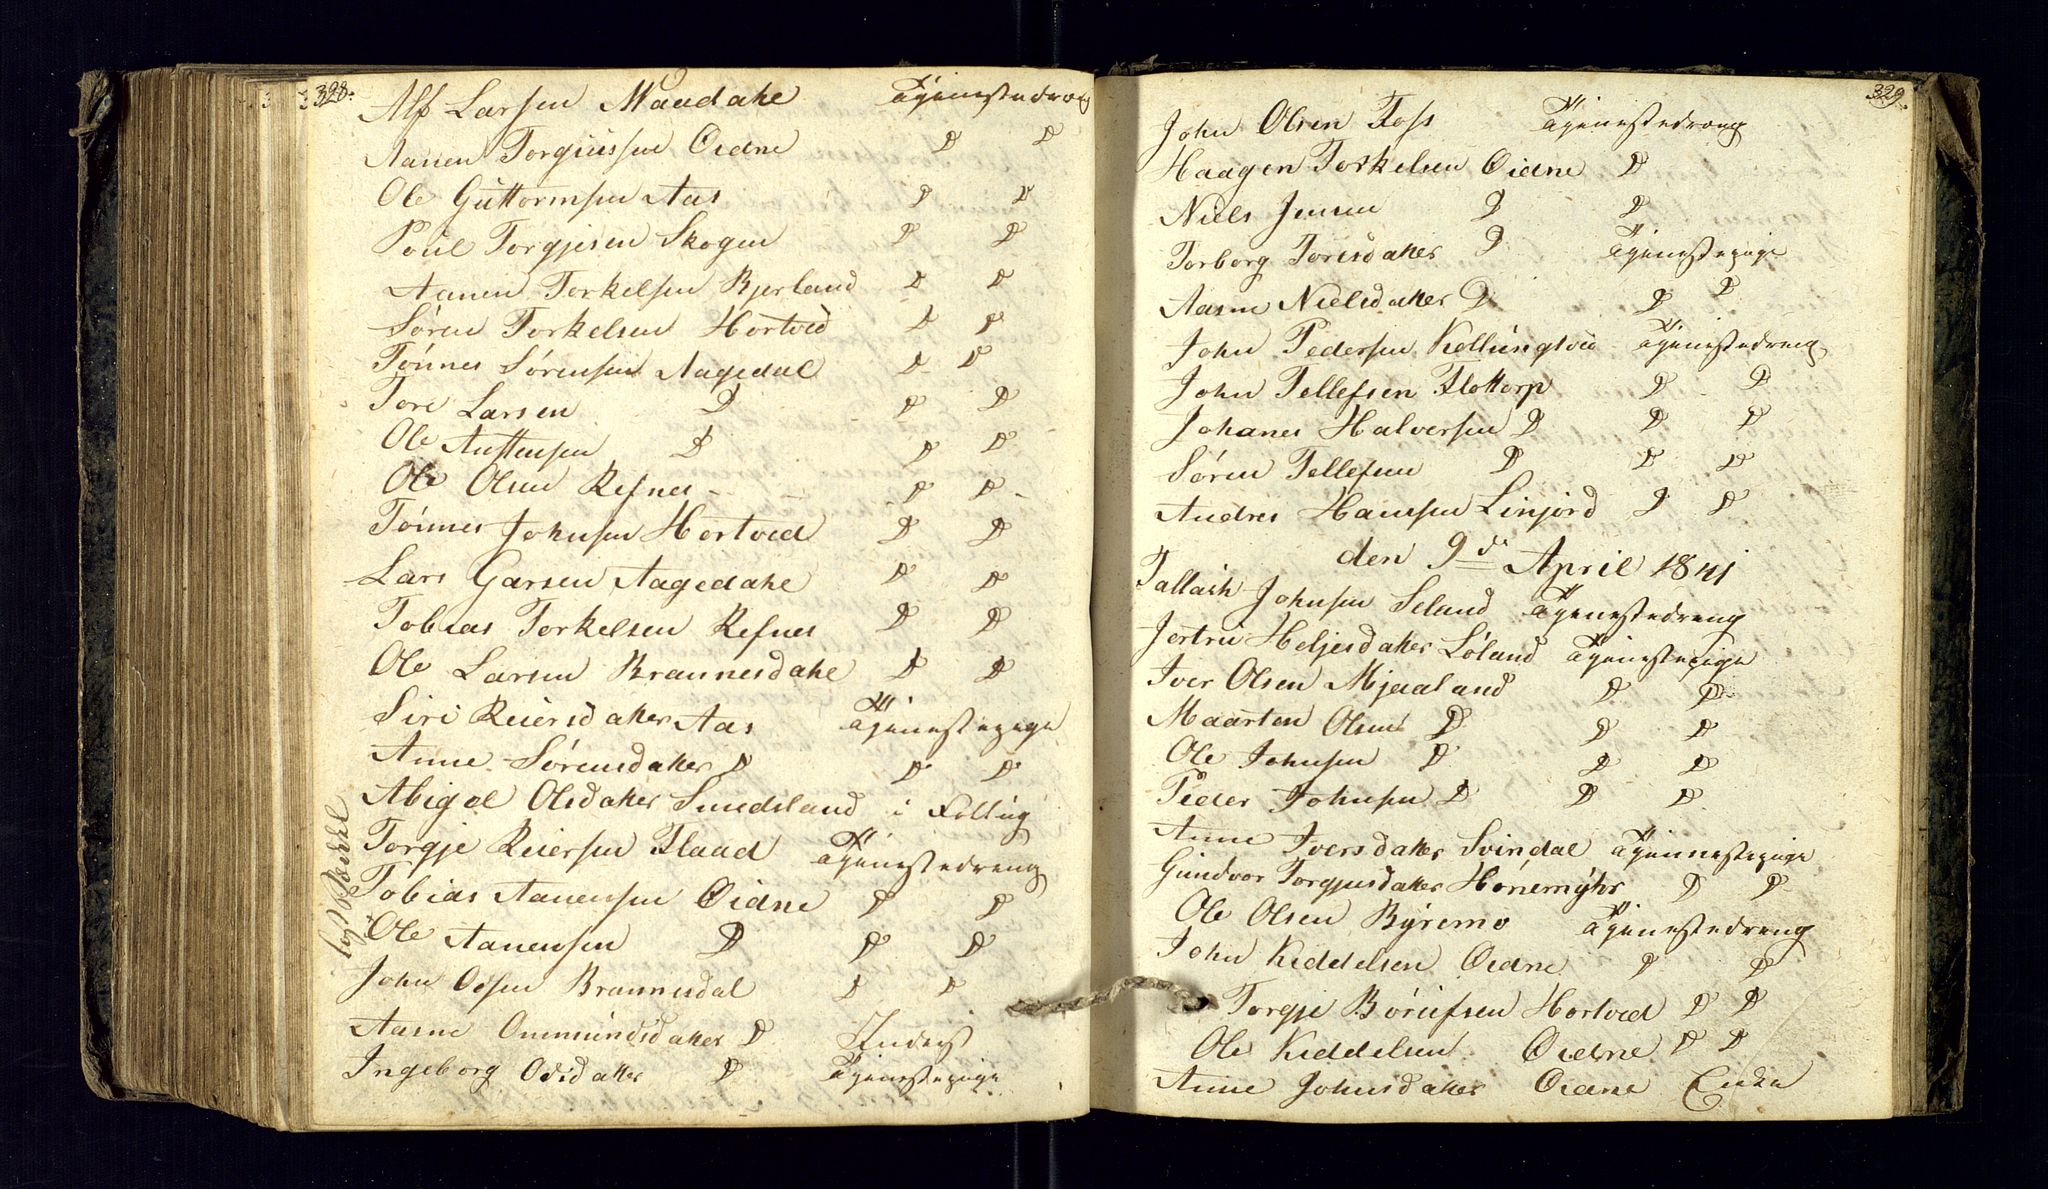 328.
Alf Larsen Maadahe Tjenestedreng
Aanen Torgiussen Oidne D D
Ole Guttormsen Aas D D
Poul Torgjesen Skogen D D
Aanen Torkelsen Bjerland D D
Søren Torkelsen Hortvid D D
Tønnes Sørensen Aagedal D D
Tore Larsen D D D
Ole Austensen D D D
Ole Olsen Refnes - - D D
Tønnes Johnsen Hortved D D
Lars Garsen Aagedahe D D
Tobias Torkelsen Refnes D D
Ole Larsen Brannesdahe D D
Siri Reiersdatter Aas Tjenestepige
Anne Sørensdatter D D D
Abigel Olsdatter Smedsland i Følling
Torgje Reiersen Flaad Tjenestedreng
Tobias Aanensen Oidne D D
Ole Aanensen D D D
John Odsen Brannesdal D D
Aasne Ommundsdatter D Inderst
Ingeborg Odsdatter D Tjenestepige
329.
John Olsen Foss Tjenestedreng
Haagen Torkelsen Oidne D
Niels Jensen D D
Torborg Toresdatter D Tjenestepige
Aasne Nielsdatter D D D
John Pedersen Kollungtvid Tjenestedreng
John Tellefsen Flottorp D D
Johanes Halversen D D D
Søren Tellefsen D D D
Andres Hansen Linjord D D
den 9de April 1841
Tallach Johnsen Seland Tjenestedreng
Jortru Heljesdatter Løland Tjenestepige
Iver Olsen Mjaaland D D
Maarten Olsen D D D
Ole Johnsen D D D
Peder Johnsen D D D
Anne Iversdatter Svindal Tjennestepige
Gundvor Torgjusdatter Honemyhr D D
Ole Olsen Byremo Tjenestedreng
John Keddelsen Oidne D D
Torgje Børufsen Hortved D D
Ole Keddelsen Oidne D D
Anne Johnsdatter Oidne Enke